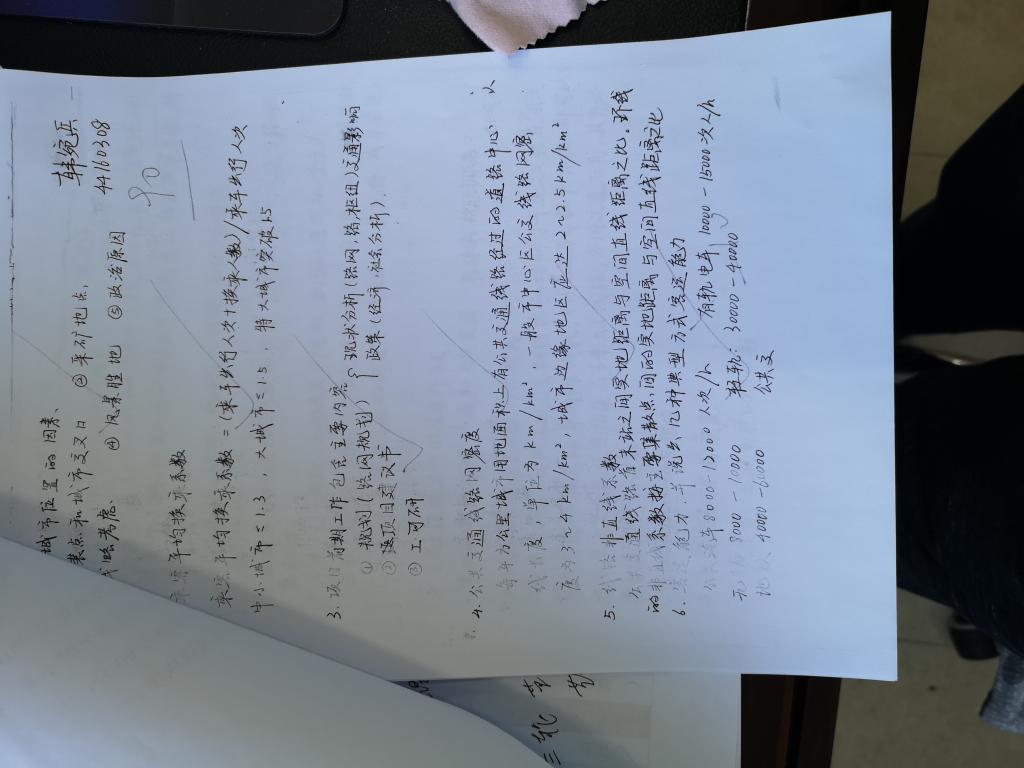 韩宛兵
44160308
90
城市位置的因素、
集点和城市交叉口 ② 采矿地点,
战略考虑 ④ 风景胜地 ⑤ 政治原因
乘客平均换乘系数
乘客平均换乘系数=(乘车出行人次+换乘人数)/乘车出行人次
中小城市≤1.3,大城市≤1.5,特大城市突破1.5
3. 项目前期工作包括主要内容
① 规划(线网规划) 现状分析(线网,路,枢纽)交通影响
② 建议项目建议书 政策(经济,社会分析).
③ 工可研
4. 公共交通线路网密度
每平方公里城市用地面积上有公共交通线路经过的道路中心
线长度,单位为km/km²,一般市中心区公交线路网密
度为3~4km/km²,城市边缘地区应达2~2.5km/km²
5. 线路非直线系数
公共交通线路首末站之间实地距离与空间直线距离之比,环线
的非直线系数按主要集散点间的实地距离与空间直线距离之比
6. 运能力并说出几种典型方式客运能力
公共汽车8000-12000人次/h 有轨电车10000-15000次人/h
无 8000-10000 轻轨:30000-40000
地铁 40000-60000 公共交